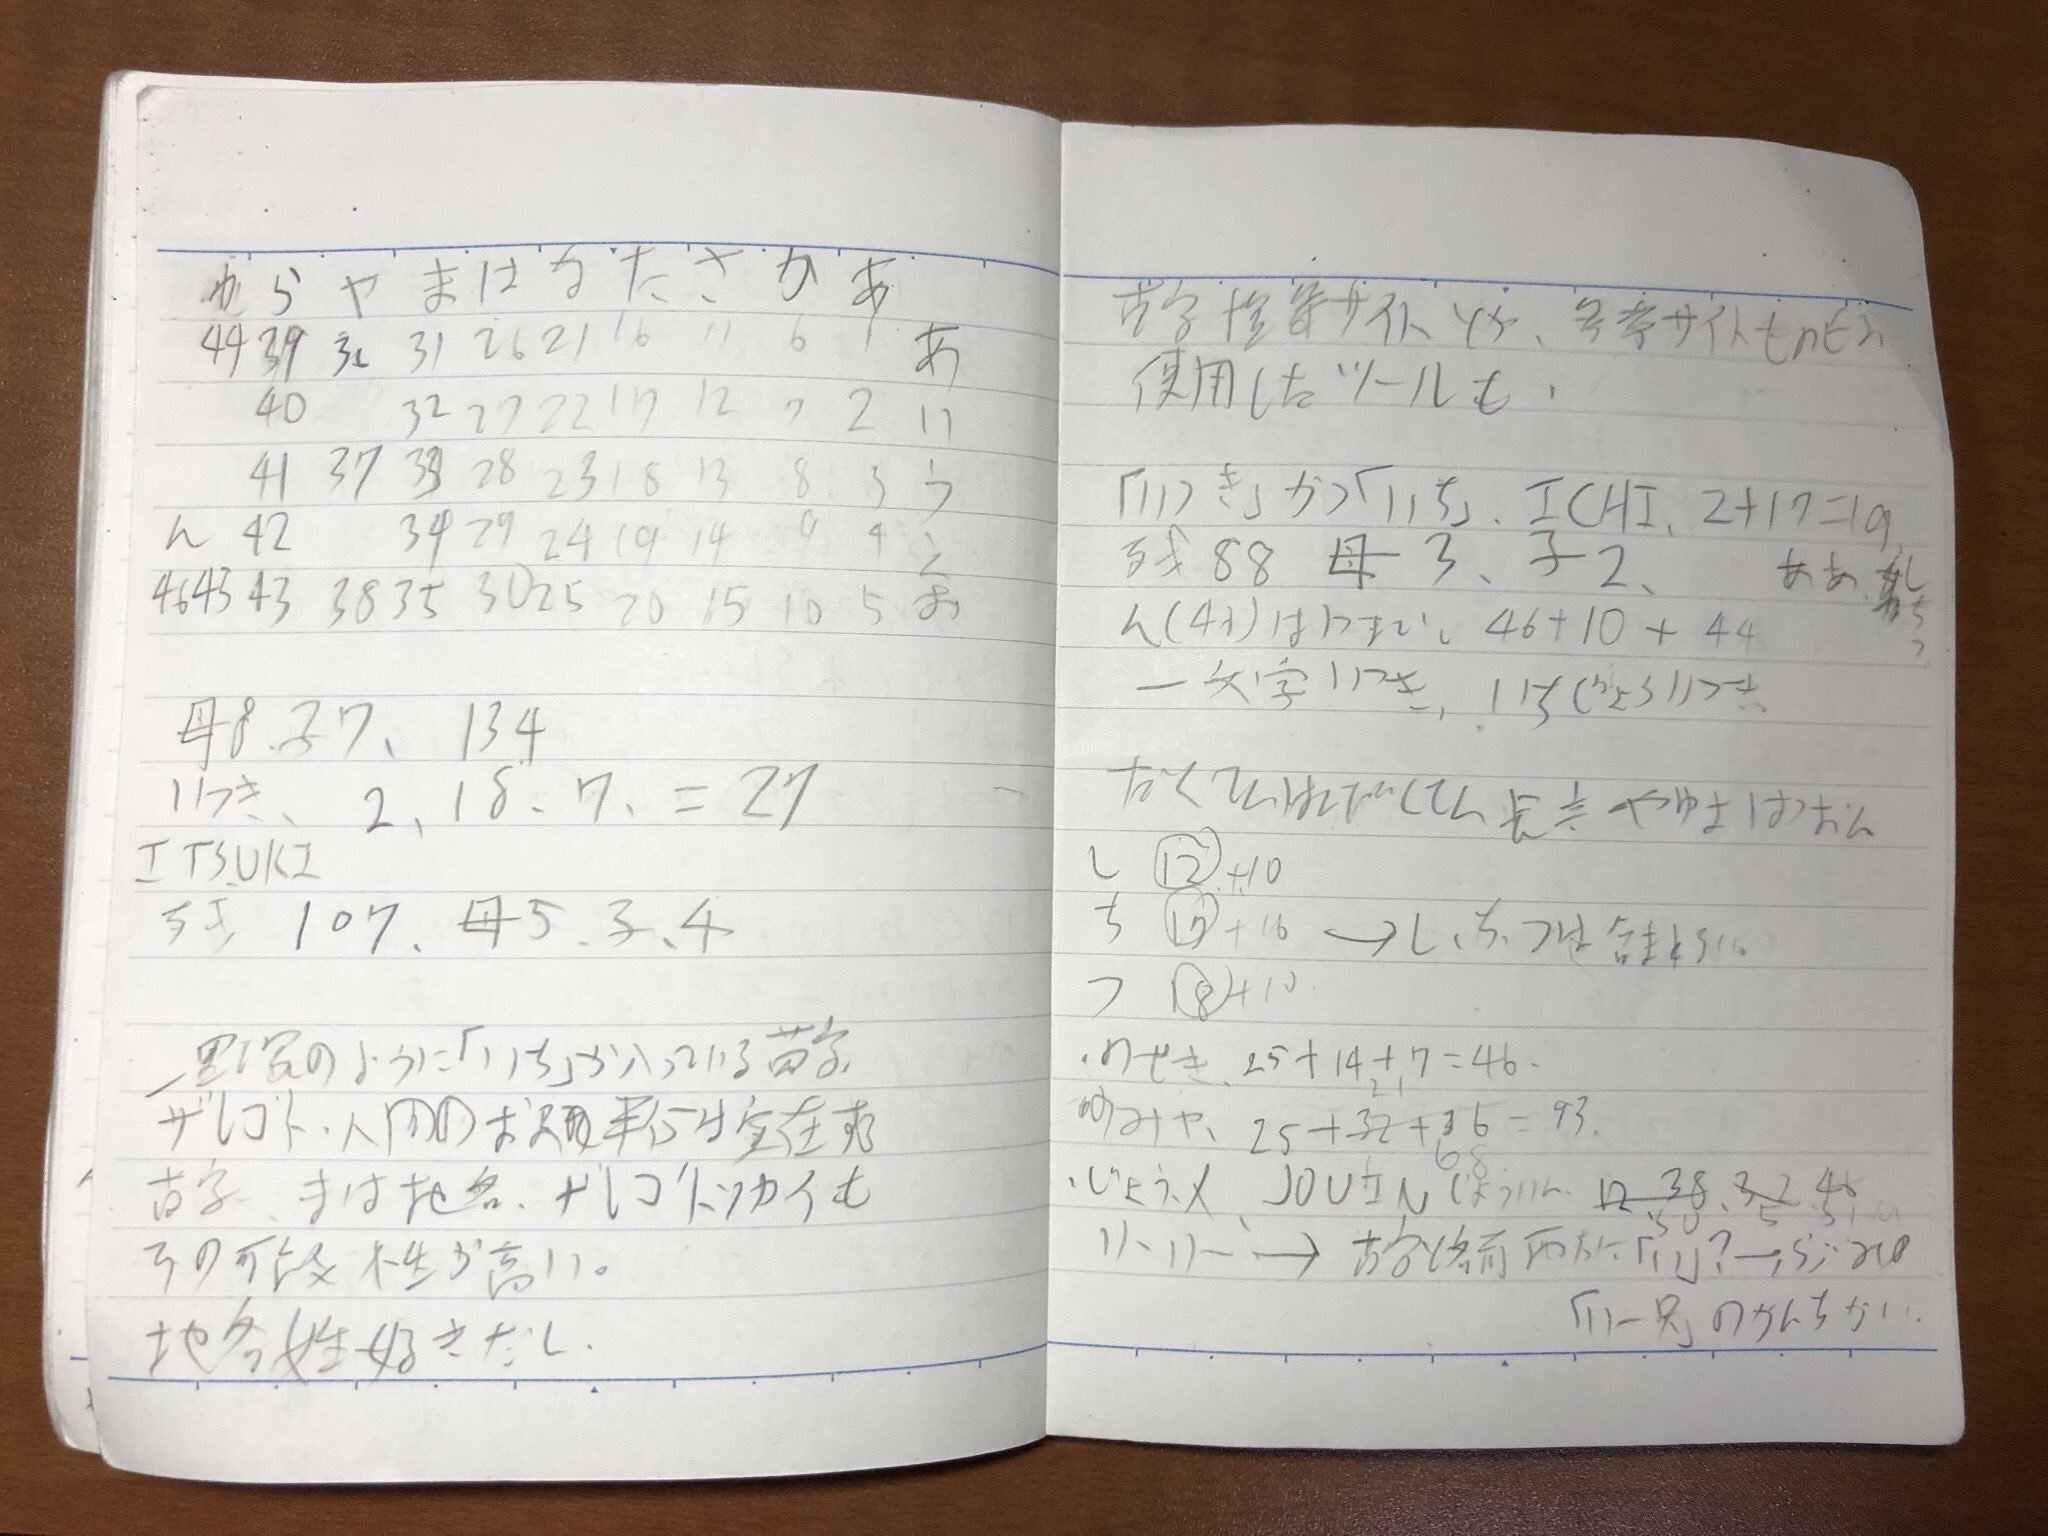 わ ら や ま は な た さ か あ
44 39 36 31 26 21 16 11 6 1 あ
40 32 27 22 17 12 7 2 い
41 37 33 28 23 18 13 8 3 う
ん 42 34 29 24 19 14 9 4 え
46 43 43 38 35 30 25 20 15 10 5 お
母8.子7、 134
いつき、 2、18、7、=27
ITSUKI
残 107、母5、子、4
のように「いち」が入っている苗字
ザレゴト・人間の は実在
苗字、 地名、ザレゴトツカイも
その可能性が高い。
地名姓好きだし.
苗字検索サイトとか、参考サイトも
使用したツールも、
「いつき」かつ「いち」、ICHI、2+17=19
残88 母3、子2、 ああ、 し ち つ
46+10+44
一文字いつき、いちじょういつき
だくてんはんだくてん長音やゆよはつおん
し 12+10
ち 17+16 →し、ち、つは含まない。
つ 18+10
・のぜき、25+14+7=46. 21
のみや、25+32+36=93. 68
・じょう、 JOUIN じょういん 12 38、3 2 46 50 5 51
い、い→苗字名前両方に「い」?→
「い一只」のかんちがい.